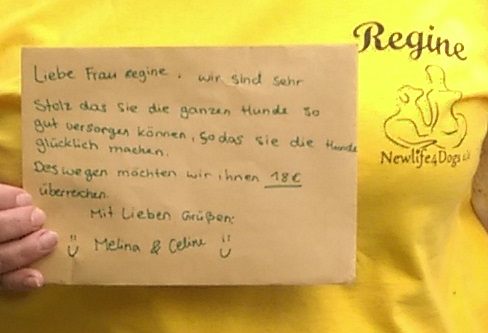 Liebe Frau Regine, wir sind sehr
Stolz das sie die ganzen Hunde so
gut versorgen können, sodas sie die Hunde
glücklich machen.
Deswegen möchten wir ihnen 18€
überreichen.
Mit Lieben Grüßen:
Melina & Celine
Regine
Newlife4Dogs e.V.